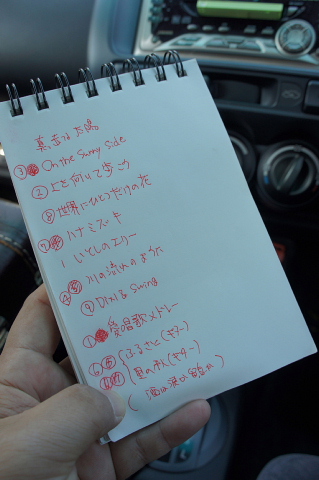 真赤な太陽
③ On the Sunny side
② 上を向いて歩こう
⑧ 世界にひとつだけの花
⑦ ハナミズキ
いとしのエリー
川の流れのように
⑨ Swing
① 愛唱歌メドレー
⑥ ふるさと(ギター)
里の秋(ギター)